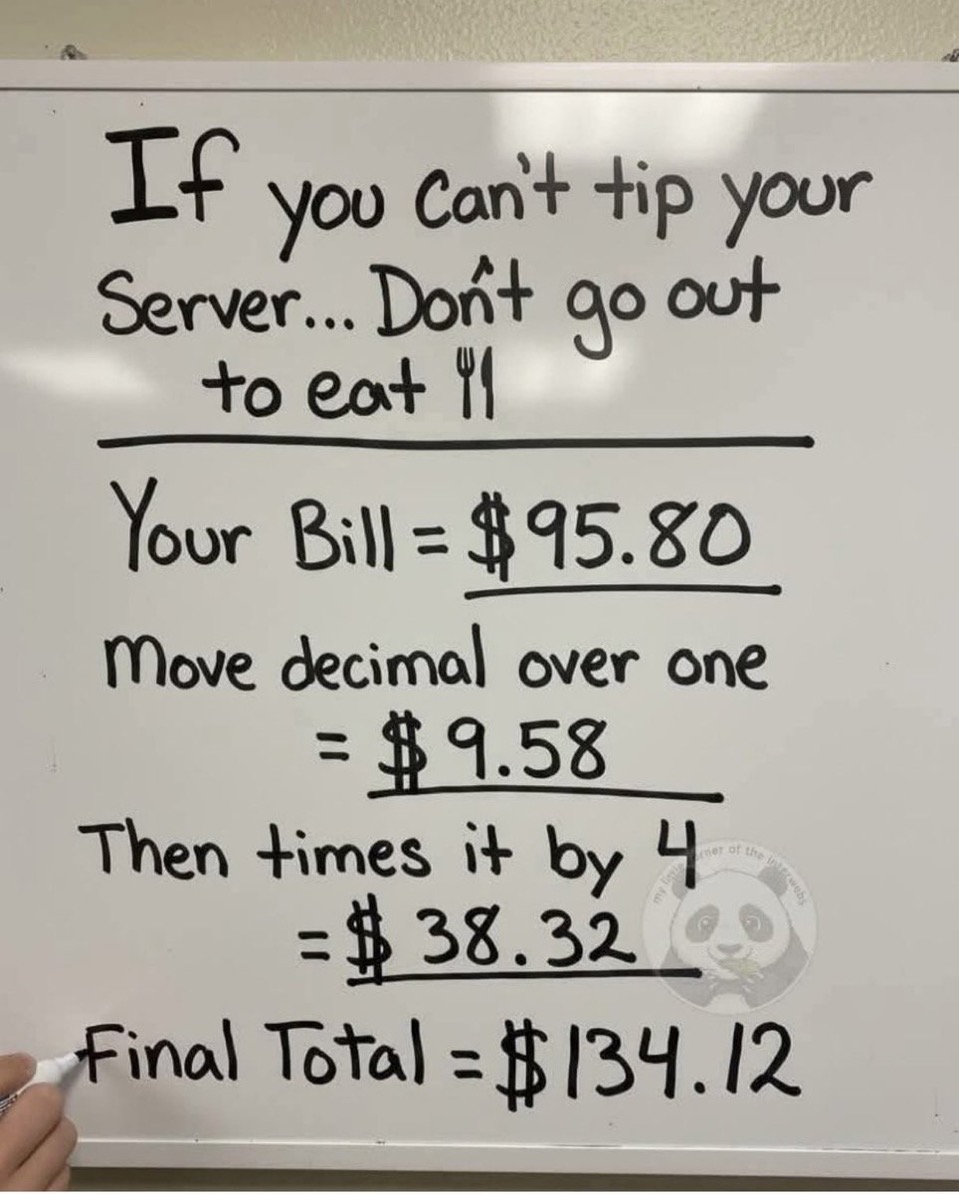 If you can't tip your
Server... Don't go out
to eat 🍴
Your Bill = $95.80
Move decimal over one
= $9.58
Then times it by 4
= $38.32
my little corner of the interwebs
Final Total = $134.12